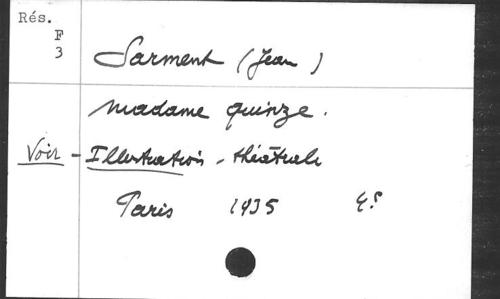 Rés.
F
3
Sarment (Jean)
Madame quinze.
Voir - Illustration - théâtrale
Paris 1935 4º